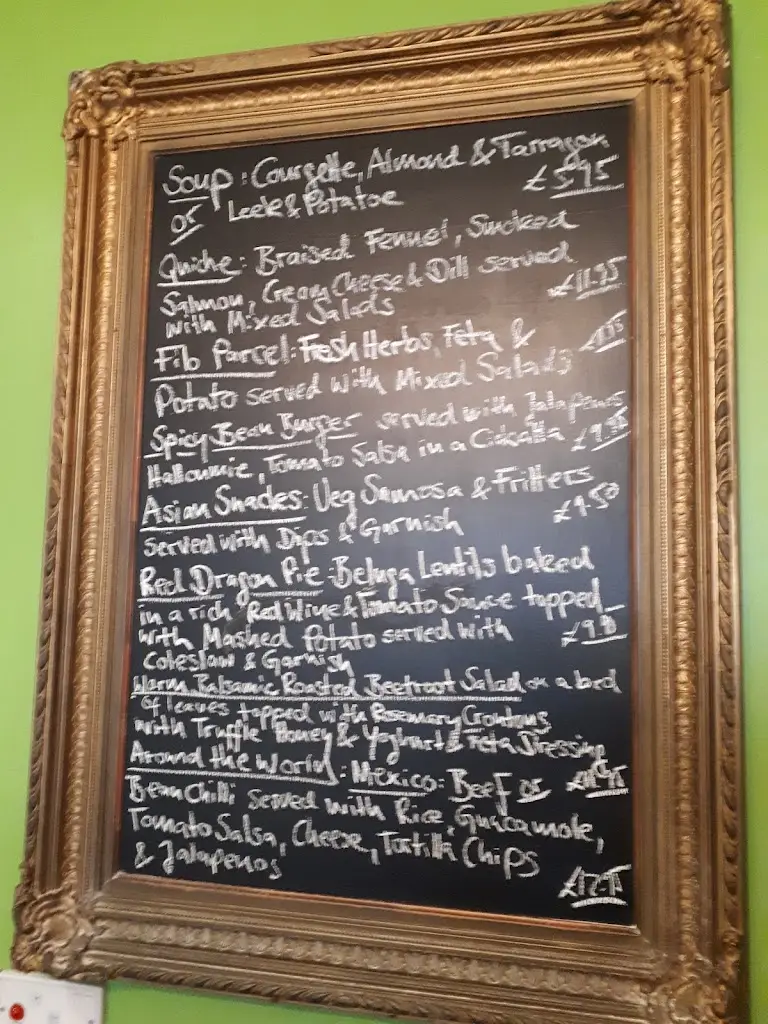 Soup: Courgette, Almond & Tarragon
or Leek & Potatoe £5.95
Quiche: Braised Fennel, Smoked
Salmon, Cream Cheese & Dill served
with Mixed Salads £11.95
Filo Parcel: Fresh Herbs, Feta &
Potato served with Mixed Salads
Spicy Bean Burger served with Jalapenos
Halloumie, Tomato Salsa in a Ciabatta
Asian Snacks: Veg Samosa & Fritters
served with Dips & Garnish £9.50
Red Dragon Pie: Beluga Lentils baked
in a rich Red Wine & Tomato Sauce topped
with Mashed Potato served with
Coleslaw & Garnish
Warm Balsamic Roasted Beetroot Salad on a bed
of leaves topped with Rosemary Croutons
with Truffle Honey & Yoghurt & Feta Dressing
Around the World: Mexico: Beef or
Bean Chilli served with Rice, Guacamole,
Tomato Salsa, Cheese, Tortilla Chips
& Jalapenos